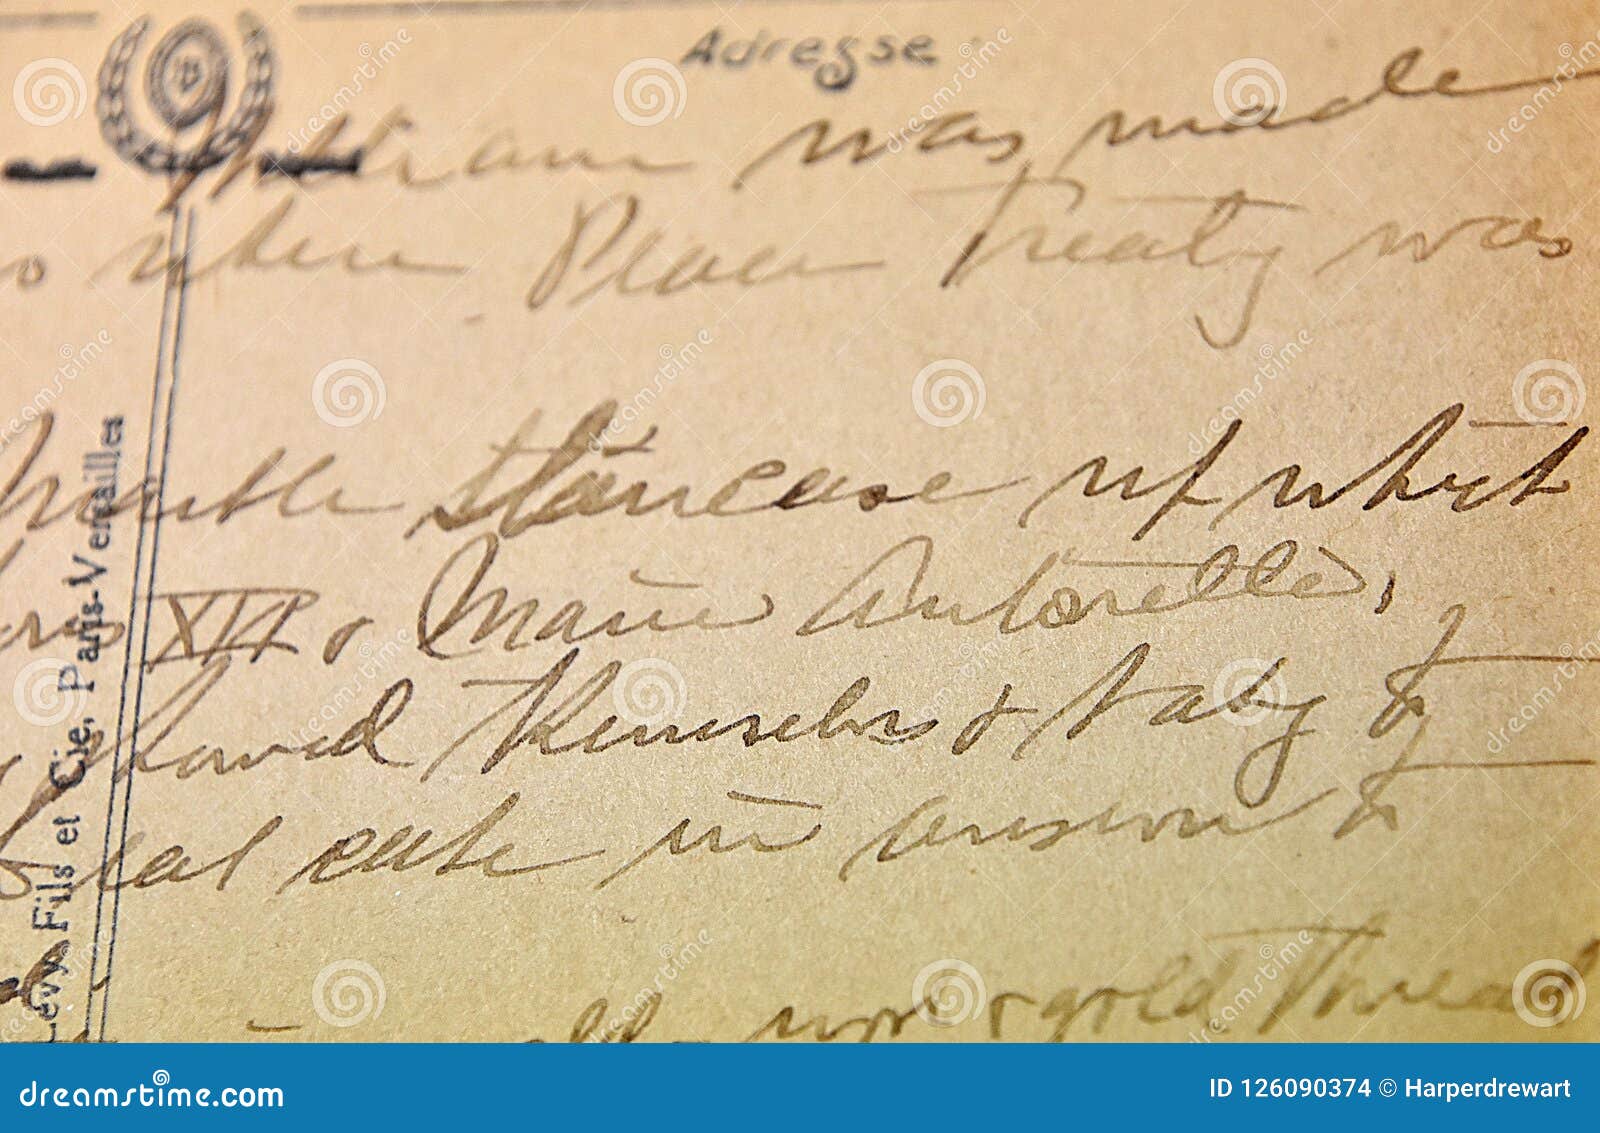 Adresse
was made
where Peace Treaty was
Marble Staircase up which
XVI & Marie Antoinette,
showed themselves & baby to
in answer to
gold thread
Levy Fils et Cie, Paris-Versailles
dreamstime.com
ID 126090374 © Harperdrewart